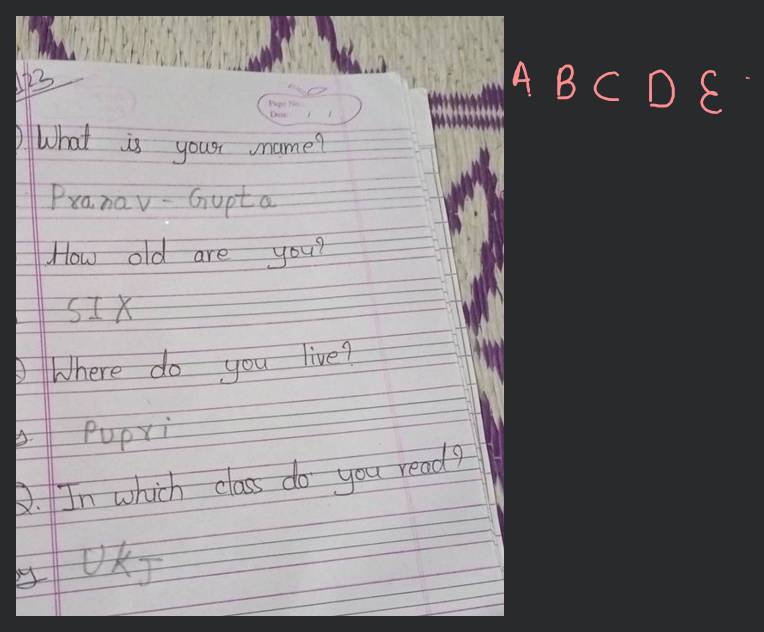 23
A B C D E
Page No.:
Date: / /
Q) What is your name?
Pranav - Gupta
How old are you?
SIX
Q) Where do you live?
Pupri
Q. In which class do you read?
UKJ